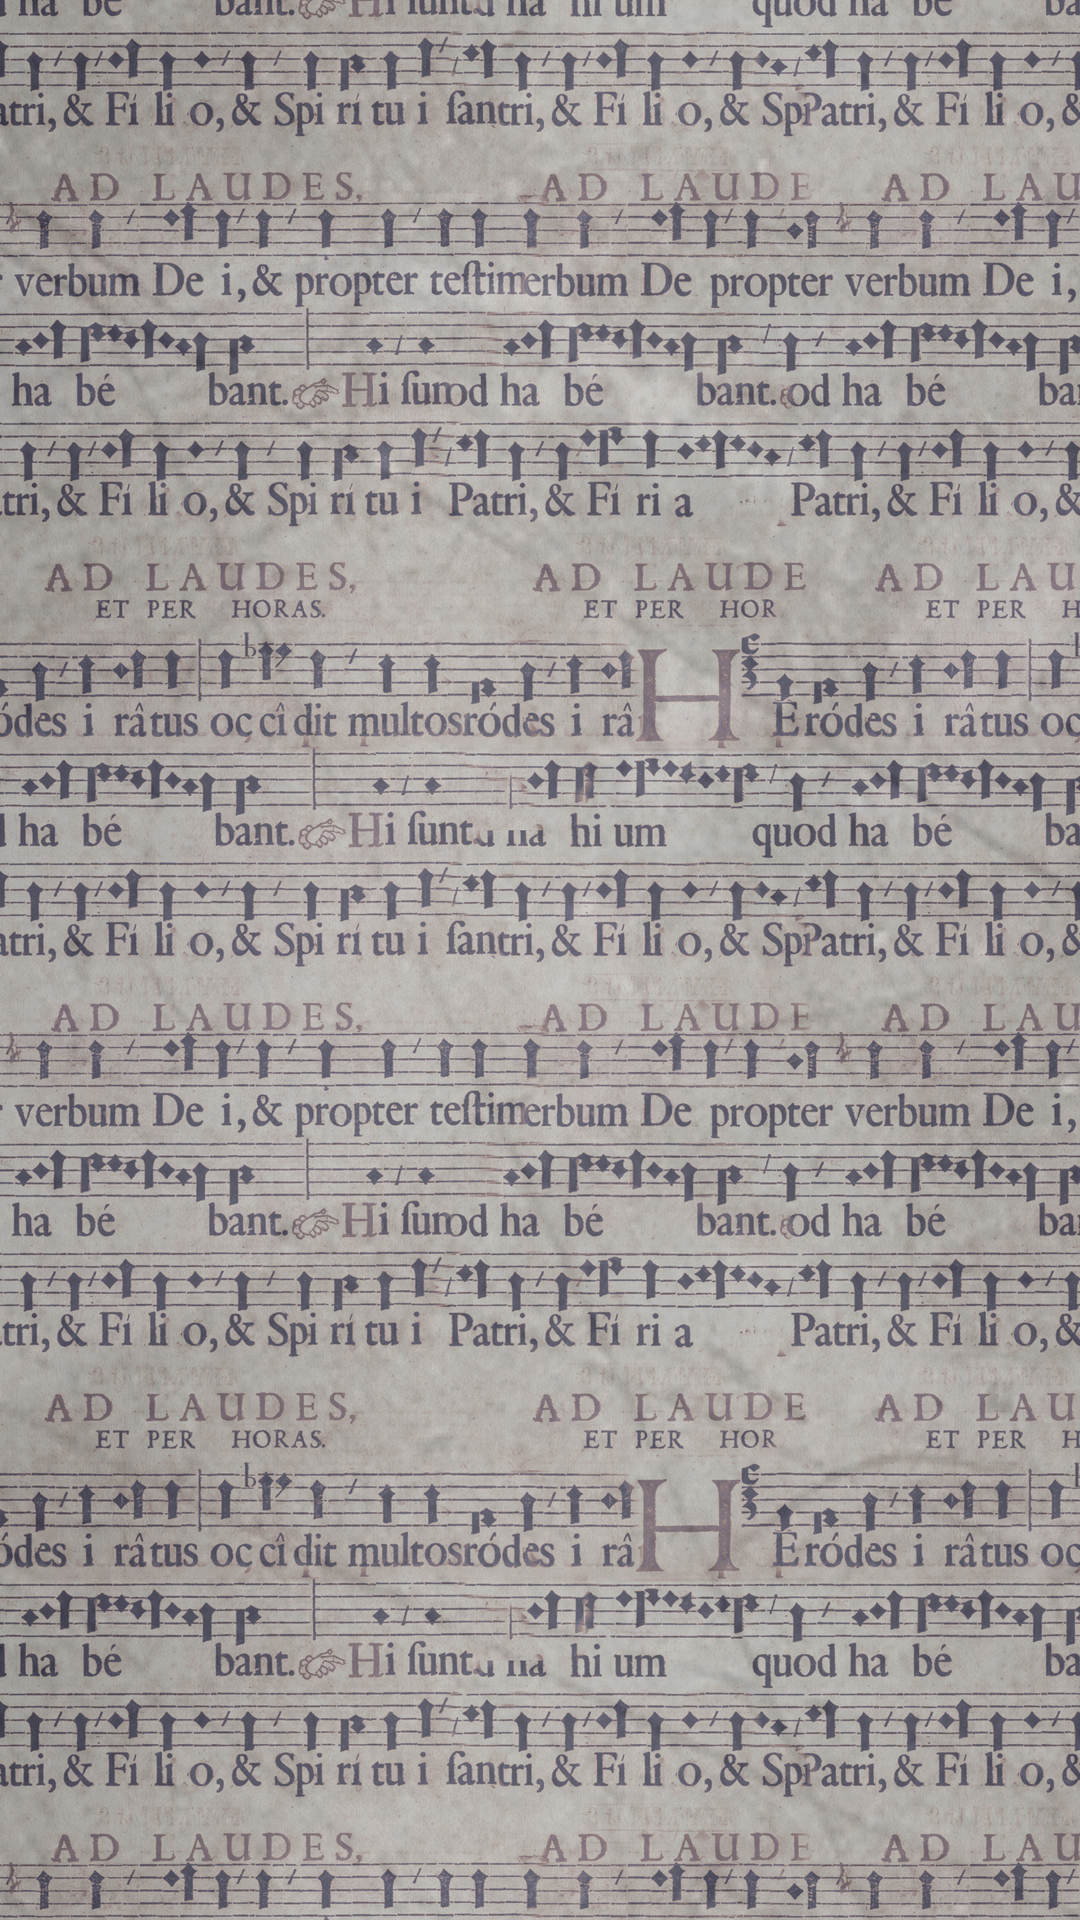 bant. Hi ha hi um quod ha bé ba
atri, & Fí li o, & Spi rí tu i ſantri, & Fí li o, & SpPatri, & Fí li o, &
AD LAUDES, AD LAUDE AD LAU
verbum De i, & propter teſtimerbum De propter verbum De i,
ha bé bant. Hi ſunod ha bé bant. od ha bé ba
tri, & Fí li o, & Spi rí tu i Patri, & Fí ri a Patri, & Fí li o, &
AD LAUDES, AD LAUDE AD LAU
ET PER HORAS. ET PER HOR ET PER H
ódes i râtus oç cî dit multosródes i râ H Eródes i râtus oç
ha bé bant. Hi ſunt ha hi um quod ha bé ba
atri, & Fí li o, & Spi rí tu i ſantri, & Fí li o, & SpPatri, & Fí li o, &
AD LAUDES, AD LAUDE AD LAU
verbum De i, & propter teſtimerbum De propter verbum De i,
ha bé bant. Hi ſunod ha bé bant. od ha bé ba
tri, & Fí li o, & Spi rí tu i Patri, & Fí ri a Patri, & Fí li o, &
AD LAUDES, AD LAUDE AD LAU
ET PER HORAS. ET PER HOR ET PER H
ódes i râtus oç cî dit multosródes i râ H Eródes i râtus oç
ha bé bant. Hi ſunt ha hi um quod ha bé ba
atri, & Fí li o, & Spi rí tu i ſantri, & Fí li o, & SpPatri, & Fí li o, &
AD LAUDES, AD LAUDE AD LAU